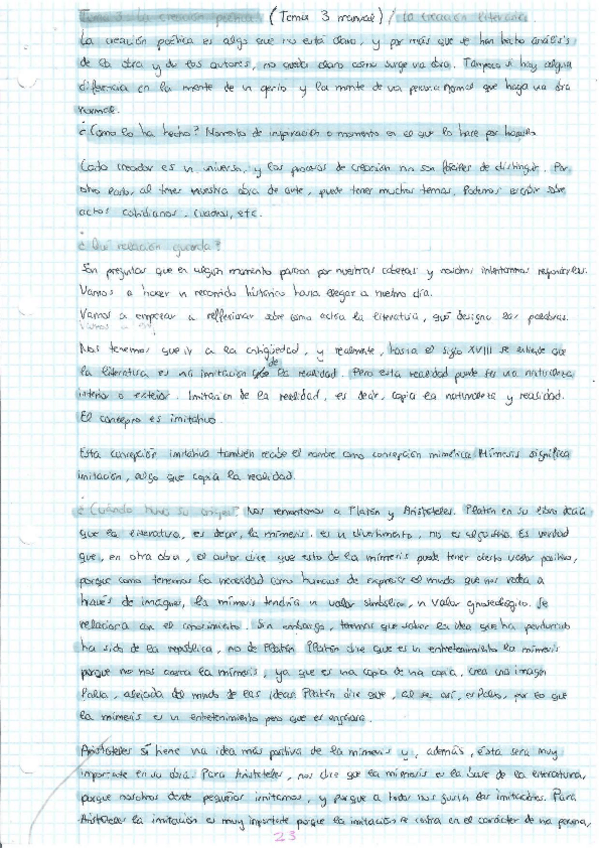 Tema 3: La creación poética (Tema 3 manual) / La creación literaria
La creación poética es algo que no está claro, y por más que se han hecho análisis
de la obra y de los autores, no queda claro como surge una obra. Tampoco si hay alguna
diferencia en la mente de un genio y la mente de una persona normal que haga una obra
normal.
¿Como lo ha hecho? Momento de inspiración o momento en el que lo hace por
Cada creador es un universo, y los procesos de creación no son fáciles de distinguir. Por
otro lado, al tener nuestra obra de arte, puede tener muchos temas. Podemos escribir sobre
actos cotidianos, cuadros, etc.
¿Qué relación guarda?
Son preguntas que en algún momento pasan por nuestras cabezas y nosotros intentamos responderlas.
Vamos a hacer un recorrido histórico hasta llegar a nuestro día.
Vamos a empezar a reflexionar sobre como actúa la literatura, qué designa las palabras.
Nos tenemos que ir a la antigüedad, y realmente, hasta el siglo XVIII se entiende que
la literatura es una imitación de la realidad. Pero esta realidad puede ser una naturaleza
interior o exterior. Imitación de la realidad, es decir, copia la naturaleza y realidad.
El concepto es imitativo.
Esta concepción imitativa también recibe el nombre como concepción mimética. Mímesis significa
imitación, algo que copia la realidad.
¿Cuándo tiene su origen? Nos remontamos a Platón y Aristóteles. Platón en su libro decía
que la literatura, es decir, la mímesis, es un divertimento, no es algo serio. Es verdad
que, en otra obra, el autor dice que esto de la mímesis puede tener cierto valor positivo,
porque como tenemos la necesidad como humanos de expresar el mundo que nos rodea a
través de imágenes, la mímesis tendría un valor simbólico, un valor gnoseológico. Se
relaciona con el conocimiento. Sin embargo, tenemos que saber la idea que ha perdurado
ha sido de la república, no de Platón. Platón dice que es un entretenimiento la mímesis
porque no nos acerca la mímesis, ya que es una copia de una copia, crea una imagen
falsa, alejada del mundo de las ideas. Platón dice que, al ser así, es falso, por lo que
la mímesis es un entretenimiento pero que es engañosa.
Aristóteles sí tiene una idea más positiva de la mímesis y, además, ésta será muy
importante en su obra. Para Aristóteles, nos dice que la mímesis es la base de la literatura,
porque nosotros desde pequeños imitamos, y porque a todos nos gustan las imitaciones. Para
Aristóteles la imitación es muy importante porque la imitación se centra en el carácter de una persona,
23